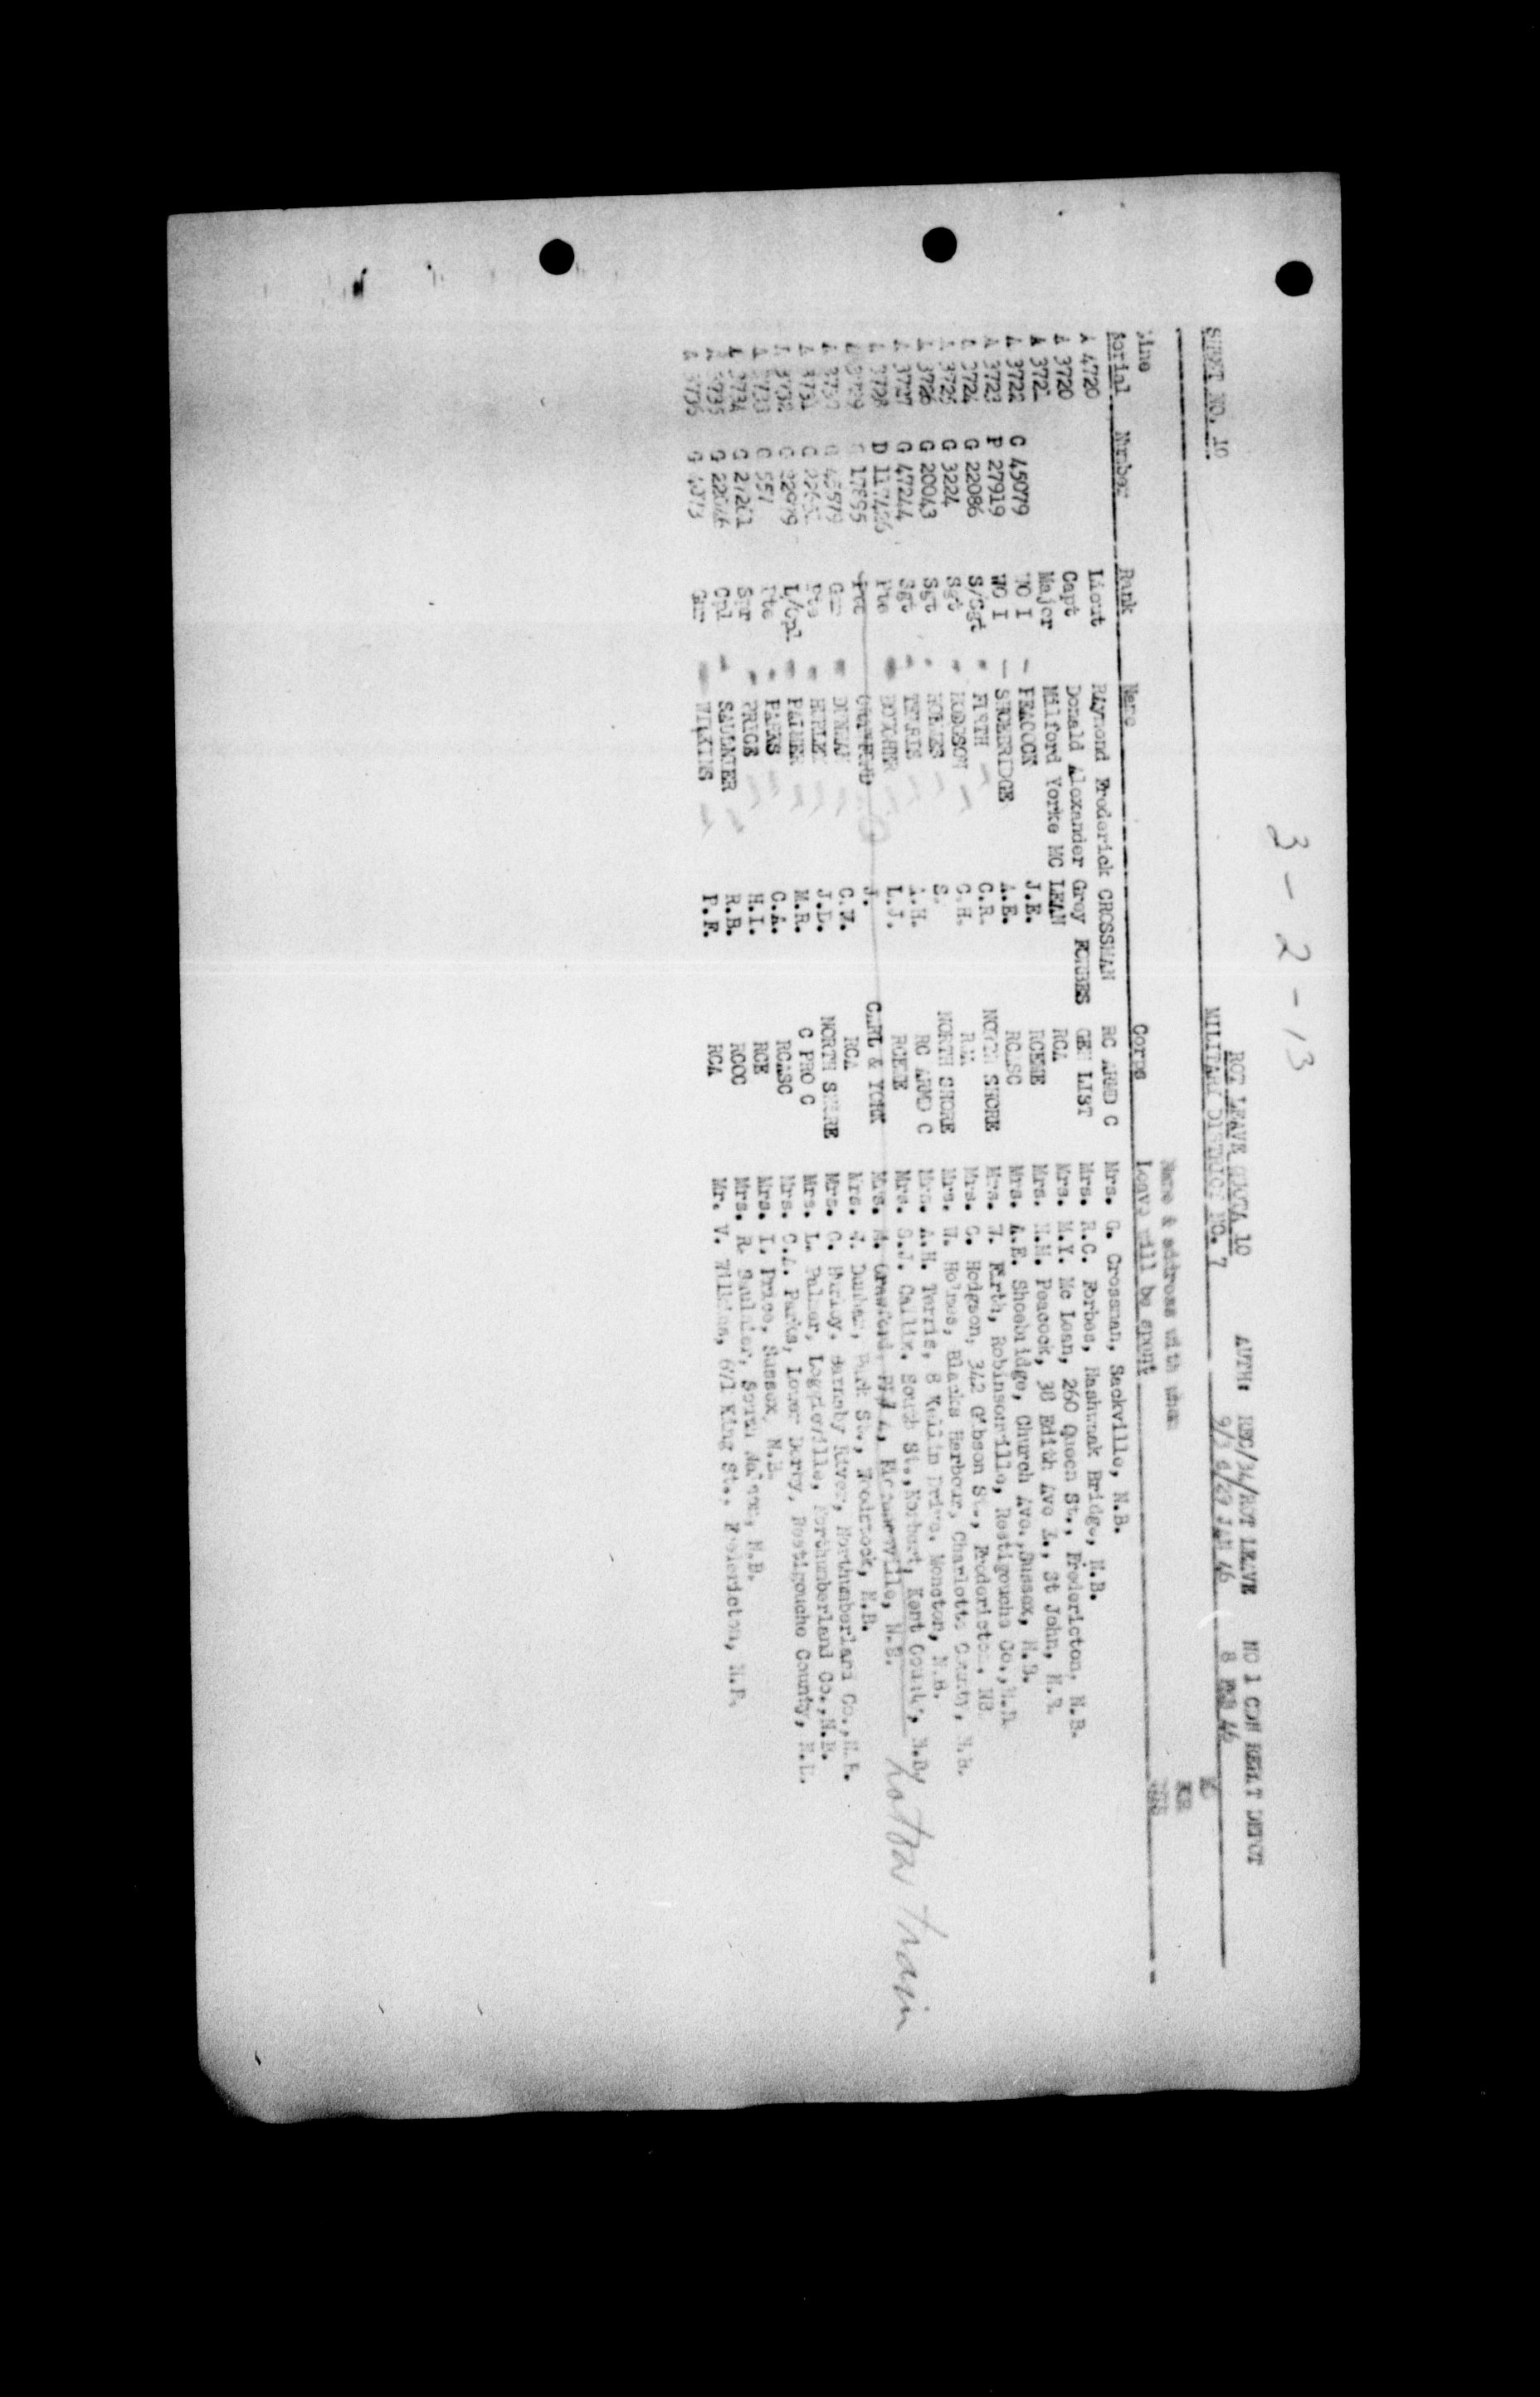 3-2-13
ROT LEAVE QUOTA 10 AUTH: REC/34/ROT LEAVE NO 1 CDN REPAT DEPOT
SHEET NO. 10 MILITARY DISTRICT NO. 7 8 FEB 46
Name & address with whom
Line
Serial Number Rank Name Corps Leave will be spent
A 4720 Lieut Raymond Frederick CROSSMAN RC ARMD C Mrs. G. Crossman, Sackville, N.B.
A 3720 Capt Donald Alexander Grey FORBES GEN LIST Mrs. R.C. Forbes, Nashwaak Bridge, N.B.
A 3721 Major Milford Yorke MC LEAN RCA Mrs. M.Y. Mc Lean, 260 Queen St., Fredericton, N.B.
A 3722 G 45079 WO I PEACOCK J.E. RCEME Mrs. H.M. Peacock, 38 Edith Ave E., St John, N.B.
A 3723 P 27919 WO I SHOEBRIDGE A.E. RCASC Mrs. A.E. Shoebridge, Church Ave., Sussex, N.B.
A 3724 G 22086 S/Sgt FIRTH C.R. NORTH SHORE Mrs. W. Firth, Robinsonville, Restigouche Co., N.B.
A 3725 G 3224 Sgt HODGSON C.H. Mrs. C. Hodgson, 342 Gibson St., Fredericton, NB
A 3726 G 20043 Sgt HOLMES S. NORTH SHORE Mrs. W. Holmes, Blacks Harbour, Charlotte County, N.B.
A 3727 G 47244 Sgt TERRIS A.H. RC ARMD C Mrs. A.H. Terris, 8 Drive, Moncton, N.B.
A 3728 D 117426 Pte L.J. RCEME Mrs. S.J. South St., Kent County, N.B.
A 3729 17895 Pte CRAWFORD, J. CARL & YORK Mrs. M. Crawford, N.B. Not on train
A 3730 G 45579 Gnr DUNHAM C.W. RCA Mrs. W. Dunham, Park St., Woodstock, N.B.
A 3731 Pte HURLEY J.D. NORTH SHORE Mrs. C. Hurley, Barnaby River, Northumberland Co., N.B.
A 3732 G 22979 L/Cpl PALMER M.R. C PRO C Mrs. L. Palmer, Loggieville, Northumberland Co., N.B.
A 3733 G 557 Pte PARKS C.A. RCASC Mrs. C.A. Parks, Lower Derby, Restigouche County, N.B.
A 3734 Spr PRICE H.I. RCE Mrs. I. Price, Sussex, N.B.
A 3735 G Cpl SAULNIER R.B. RCOC Mrs. R. Saulnier, South Nelson, N.B.
A 3736 G Gnr WILKINS P.F. RCA Mr. V. Wilkins, 671 King St., Fredericton, N.B.